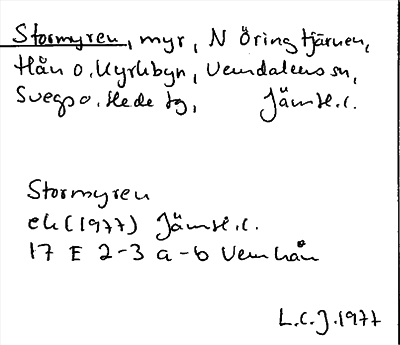 Stormyren, myr, N Öringtjärnen,
Hån o. Kyrkbyn, Vemdalens sn,
Svegs o. Hede tg, Jämtl.l.
Stormyren
ek (1977) Jämtl.l.
17 E 2-3 a-b Vemhån
L.C.J. 1977